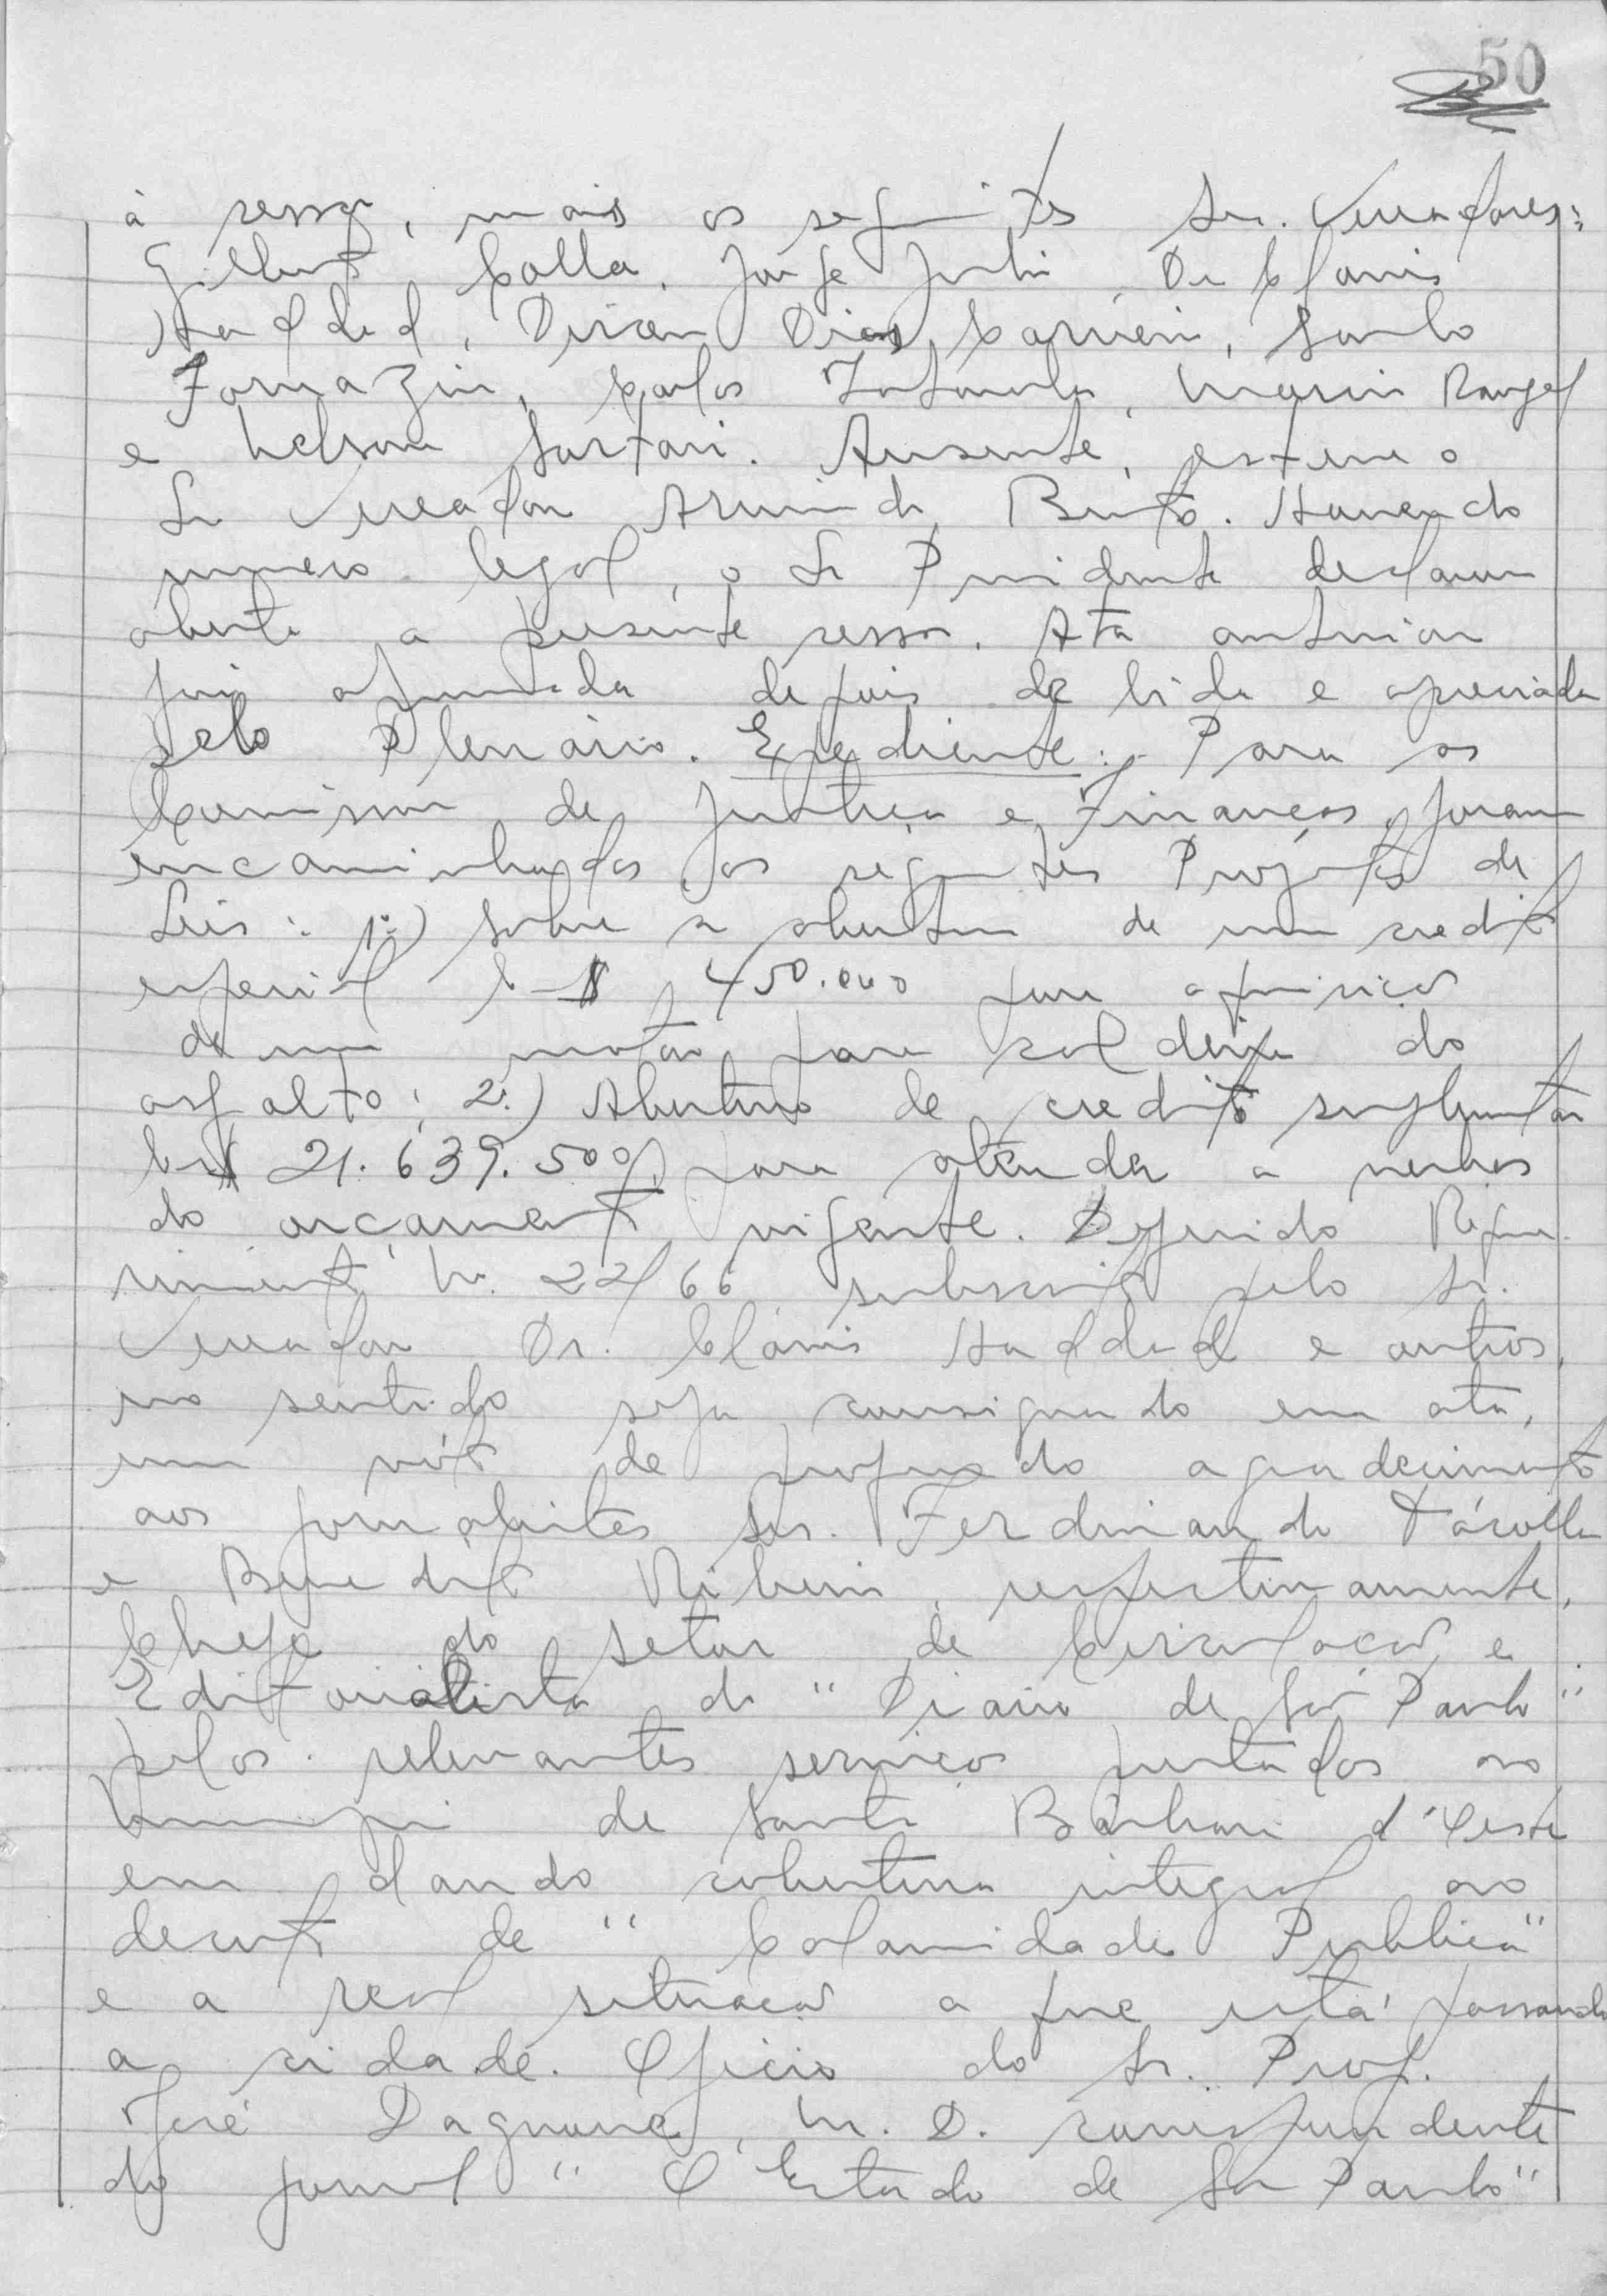 50
à sessão, mais os seguintes Srs. Vereadores:
Gilberto Colla, Jorge Juliu, Dr. Clovis
Haddad, Dirceu Dias Carneiro, Santo
Fornazin, Carlos Mario Rangel
e Nelson Sartori. Ausente, esteve o
Sr Vereador Armindo Bento. Havendo
numero legal, o Sr Presidente declarou
aberta a presente sessão. Ata anterior
foi aprovada depois de lida e apreciada
pelo Plenário. Expediente: Para as
Comissões de Justiça e Finanças, foram
encaminhados os seguintes Projetos de
Leis: 1º) Sobre a abertura de um credito
especial Cr$ 450.000 para aquisição
de um motor para caldeira do
asfalto; 2º) Abertura de credito suplementar
Cr$ 21.639.500, para atender a verbas
do orçamento vigente. Deferido Reque-
rimento N. 22/66 subscrito pelo Sr.
Vereador Dr. Clóvis Haddad e outros,
no sentido seja consignado em ata,
um vóto de profundo agradecimento
aos jornalistas Srs. Ferdinando Tárolla
e Benedito Ribeiro, respectivamente,
Chefe do Setor de Circulação e
Editorialista do "Diario de São Paulo"
pelos relevantes serviços prestados ao
Municipio de Santa Bárbara d'Oeste
em dando cobertura integral ao
decreto de "Calamidade Publica"
e a real situação a que está passando
a cidade. Oficio do Sr. Prof.
José Dagnone, M. D. correspondente
do jornal "O Estado de São Paulo"